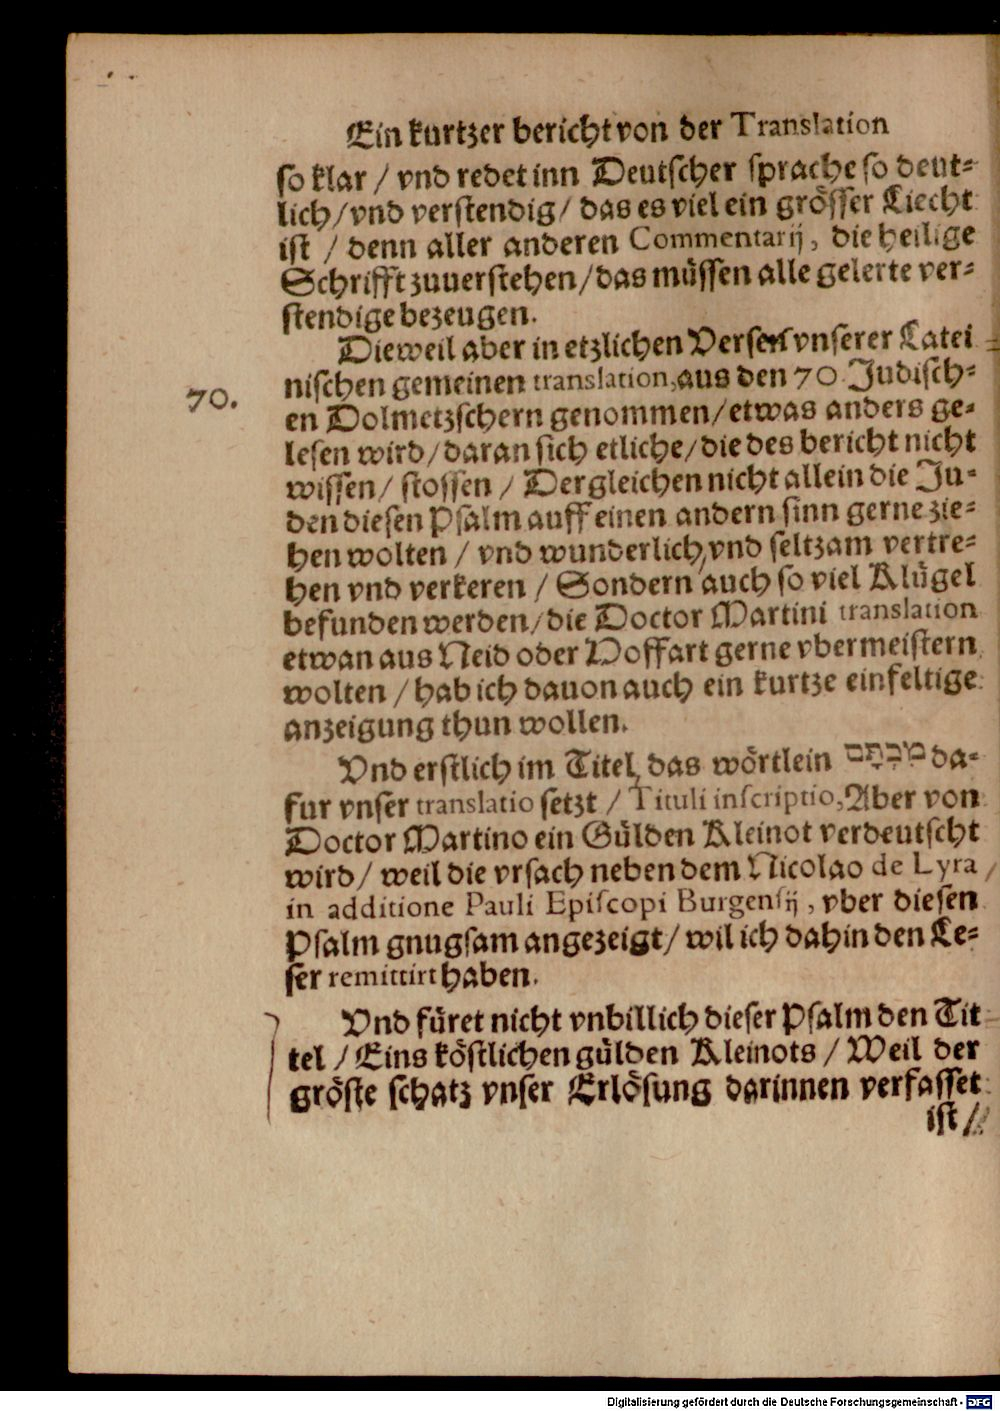 Ein kurtzer bericht von der Translation
so klar / vnd redet inn Deutscher sprache so deut-
lich / vnd verstendig / das es viel ein grösser Liecht
ist / denn aller anderen Commentarij, die heilige
Schrifft zuuerstehen / das müssen alle gelerte ver-
stendige bezeugen.
Dieweil aber in etzlichen Versen vnserer Latei
nischen gemeinen translation, aus den 70 Judisch-
70.
en Dolmetzschern genommen / etwas anders ge-
lesen wird / daran sich etliche / die des bericht nicht
wissen / stossen / Dergleichen nicht allein die Ju-
den diesen Psalm auff einen andern sinn gerne zie-
hen wolten / vnd wunderlich, vnd seltzam vertre-
hen vnd verkeren / Sondern auch so viel Klügel
befunden werden / die Doctor Martini translation
etwan aus Neid oder Hoffart gerne vbermeistern
wolten / hab ich dauon auch ein kurtze einfeltige
anzeigung thun wollen.
Vnd erstlich im Titel, das wörtlein מכתם da-
fur vnser translatio setzt / Tituli inscriptio, Aber von
Doctor Martino ein Gülden Kleinot verdeutscht
wird / weil die vrsach neben dem Nicolao de Lyra /
in additione Pauli Episcopi Burgensij, vber diesen
Psalm gnugsam angezeigt / wil ich dahin den Le-
ser remittirt haben.
Vnd füret nicht vnbillich dieser Psalm den Tit
tel / Eins köstlichen gülden Kleinots / Weil der
gröste schatz vnser Erlösung darinnen verfasset
ist /
Digitalisierung gefördert durch die Deutsche Forschungsgemeinschaft - DFG